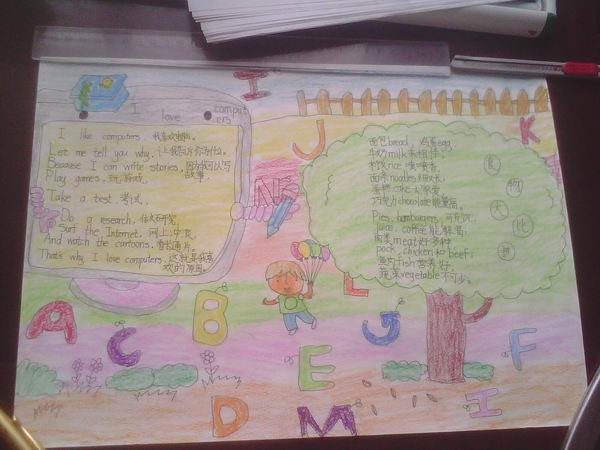 I love computers
I like computers. 我喜欢电脑。
Let me tell you why. 让我告诉你为什么。
Because I can write stories. 因为我可以写故事。
Play games. 玩游戏。
Take a test. 考试。
Do a research. 做研究。
Surf the Internet. 网上冲浪。
And watch the cartoons. 看卡通片。
That's why I love computers. 这就是我喜欢的原因。
面包bread, 鸡蛋egg,
牛奶milk
米饭rice 喷喷香
面条noodles 细又长
蛋糕cake 大家爱
巧克力chocolate能量高。
Pies, hamburgers,
juice, coffee能解渴;
肉类meat好多种
pock, chicken和beef;
鱼肉fish营养好,
蔬菜vegetable不可少。
食
物
大
比
拼
I
J
K
A
C
B
L
J
E
F
D
M
I